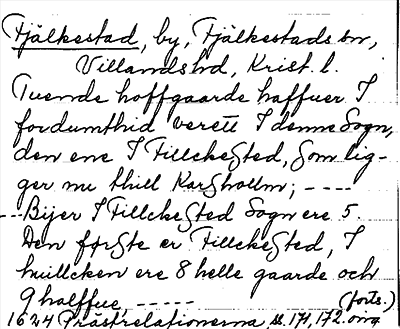 Fjälkestad, by, Fjälkestads sn,
Villands hd, Krist. l.
Tuende hoffgaarde haffuer I
fordumthid verett I denne Sogn,
den ene I FillckeSted, Som lig-
ger nu thill KarShollm; ----
--- Bijer I FillckeSted Sogn ere 5.
Den førSte er FillckeSted, I
huillcken ere 8 helle gaarde och
9 halffue, -----
(forts.)
1624 Prästrelationerna s. 171, 172. orig